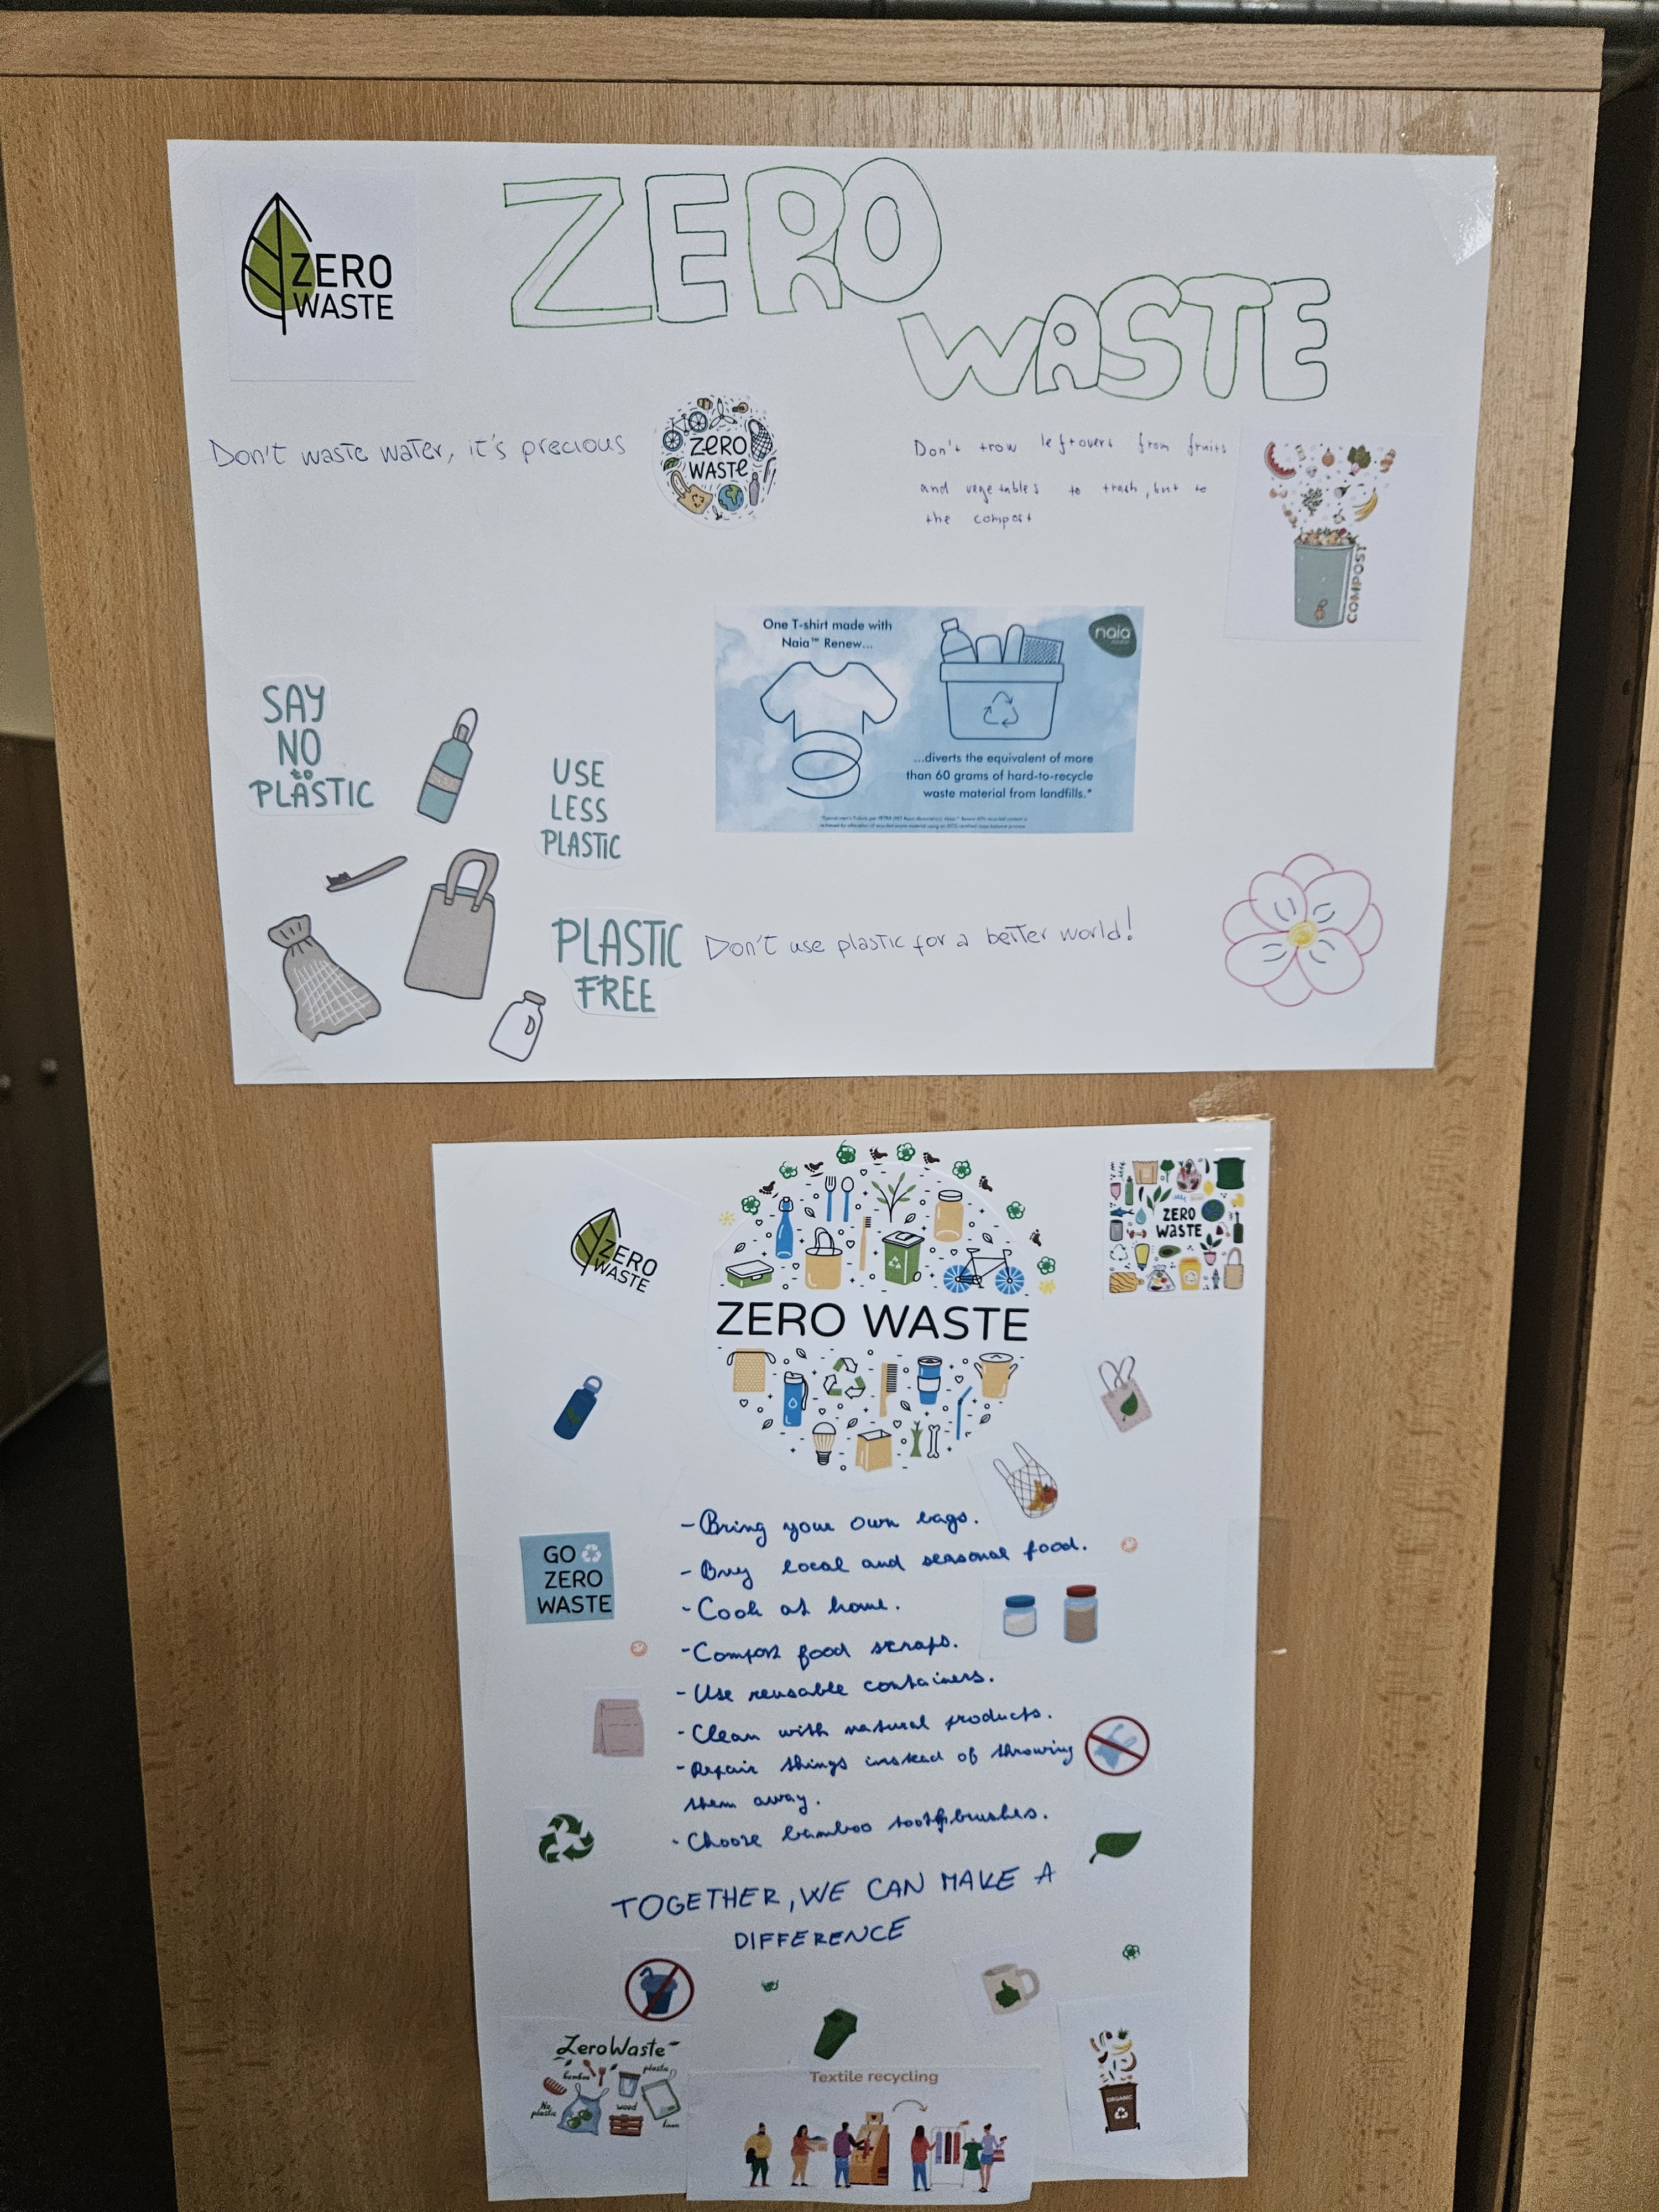 ZERO
WASTE
ZERO
WASTE
Don't waste water, it's precious
ZERO
WASTE
Don't trow leftovers from fruits
and vegetables to trash, but to
the compost
COMPOST
One T-shirt made with
Naia™ Renew...
naia
...diverts the equivalent of more
than 60 grams of hard-to-recycle
waste material from landfills.*
SAY
NO
to
PLASTIC
USE
LESS
PLASTIC
PLASTIC
FREE
Don't use plastic for a better world!
ZERO
WASTE
ZERO WASTE
ZERO
WASTE
GO
ZERO
WASTE
- Bring your own bags.
- Buy local and seasonal food.
- Cook at home.
- Compost food scraps.
- Use reusable containers.
- Clean with natural products.
- Repair things instead of throwing
them away.
- Choose bamboo toothbrushes.
TOGETHER, WE CAN MAKE A
DIFFERENCE
Zero Waste
bamboo
plastic
No
plastic
wood
Textile recycling
ORGANIC